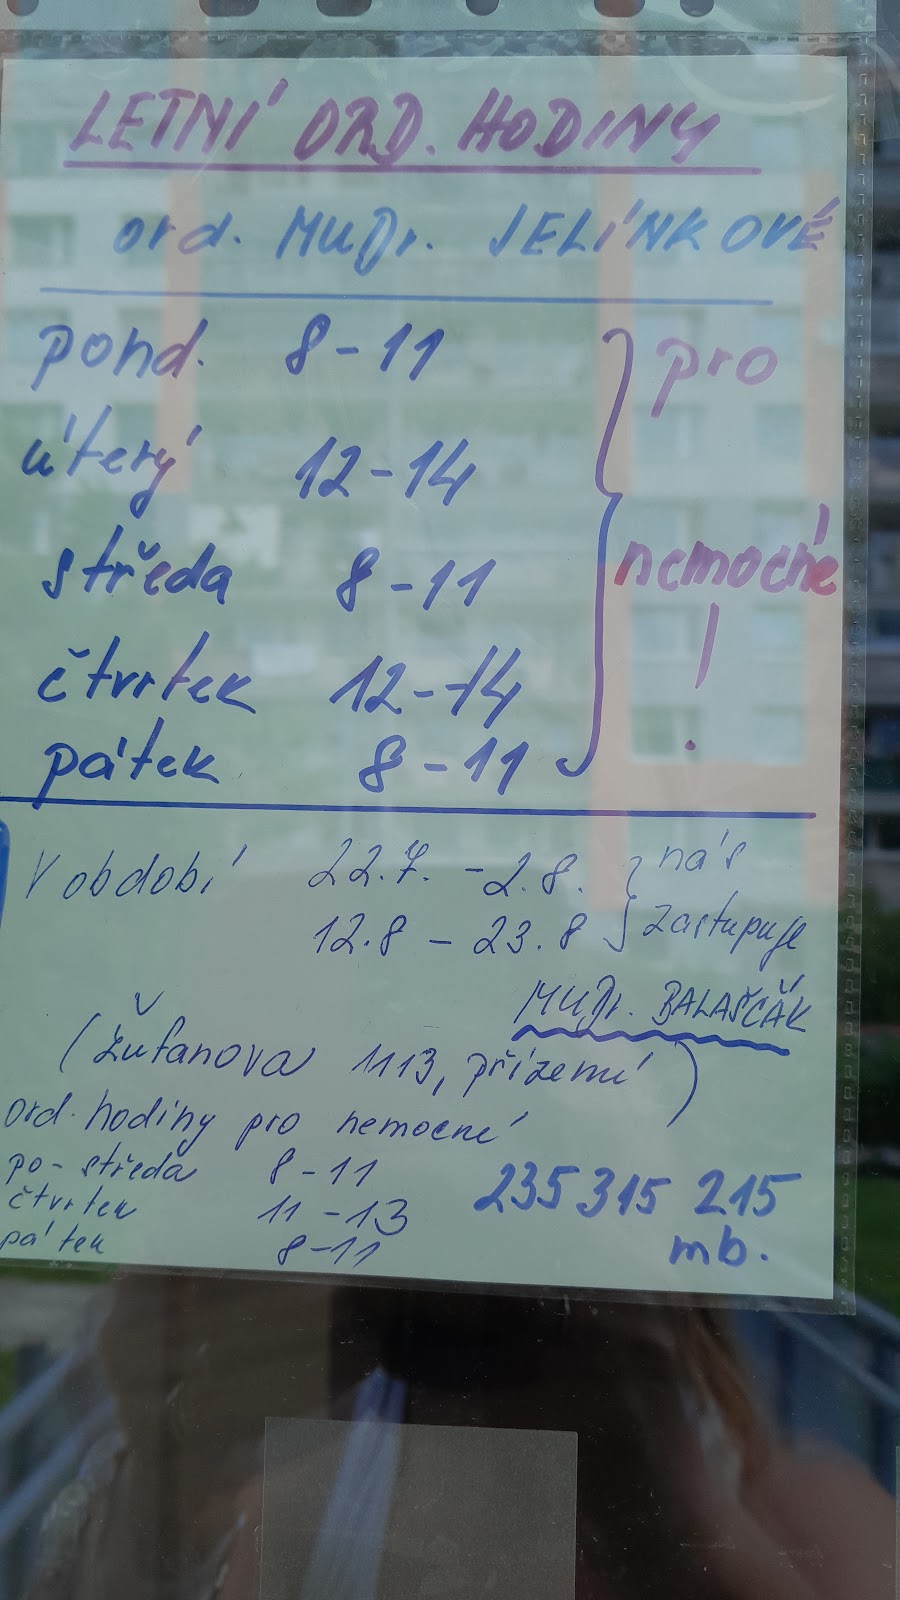 LETNÍ ORD. HODINY
ord. MUDr. JELÍNKOVÉ
pond. 8-11 pro
úterý 12-14
středa 8-11 nemocné
čtvrtek 12-14 !
pátek 8-11
V období 22.7. - 2.8. nás
12.8 - 23.8 zastupuje
MUDr. BALAŠČÁK
(Žufanova 1113, přízemí)
ord. hodiny pro nemocné
po-středa 8-11
čtvrtek 11-13 235 315 215
pátek 8-11 mb.